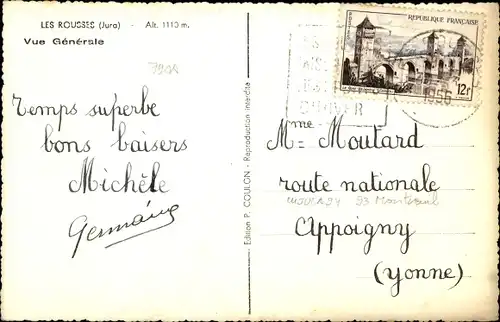 LES ROUSSES (Jura) - Alt. 1110 m.
Vue Générale
Temps superbe
bons baisers
Michèle
Germaine
Edition P. COULON - Reproduction interdite
REPUBLIQUE FRANÇAISE
12f
1956
D'HIVER
Mme Moutard
route nationale
Appoigny
(Yonne)